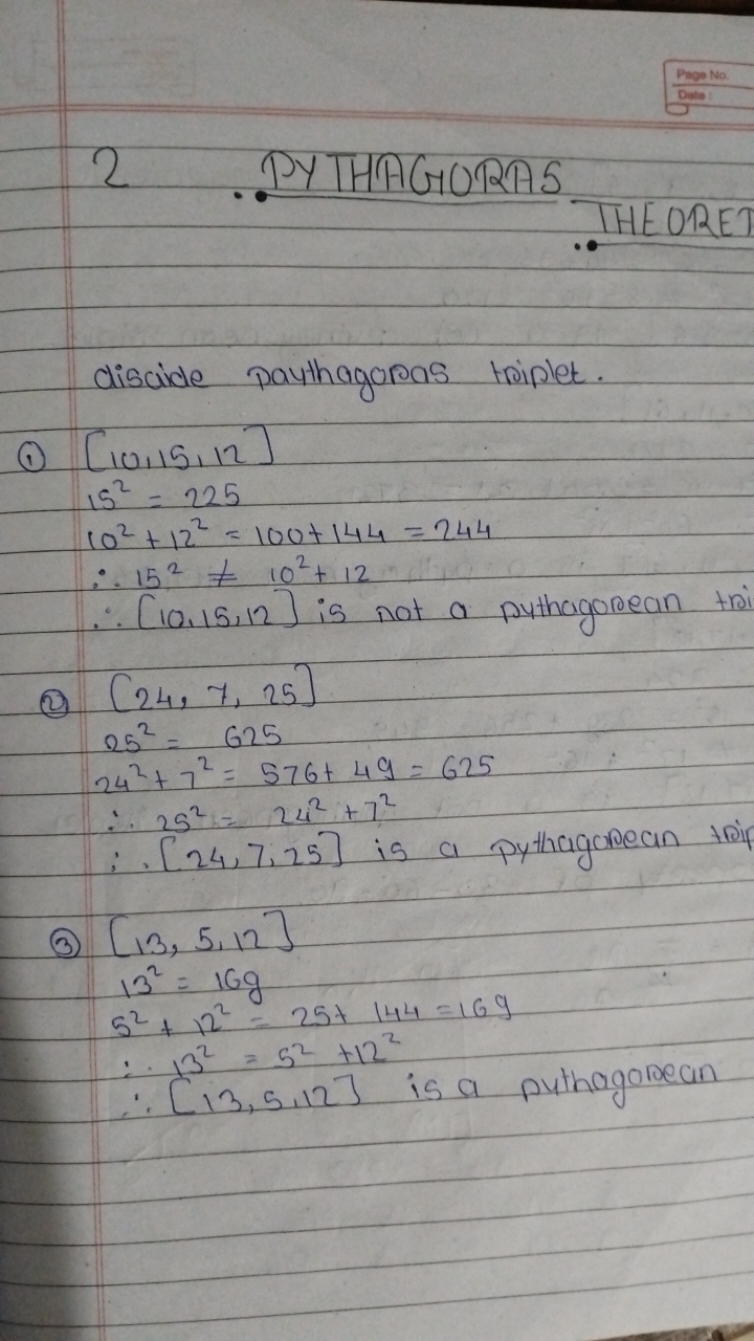 Page No.
Date :
2 PYTHAGORAS
THEORE
discide paythagoras triplet.
① [10,15,12]
15² = 225
10² + 12² = 100+144 = 244
∴ 15² ≠ 10² + 12
∴ [10,15,12] is not a pythagorean tri
② [24, 7, 25]
25² = 625
24² + 7² = 576 + 49 = 625
∴ 25² = 24² + 7²
∴ [24,7,25] is a pythagorean trip
③ [13, 5,12]
13² = 169
5² + 12² = 25+ 144 = 169
∴ 13² = 5² +12²
∴ [13,5,12] is a pythagorean